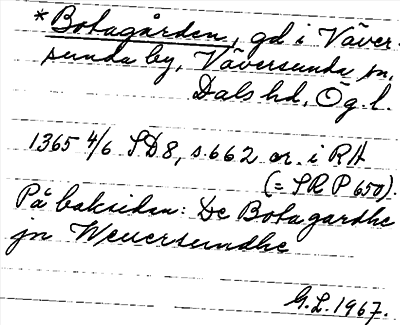 *Botagården, gd i Väver-
sunda by, Väversunda sn,
Dals hd, Ög. l.
1365 4/6 SD8, s. 662 or. i RA
(= SRP 650).
På baksidan: De Botagardhe
jn Weuersundhe
G.L. 1967.